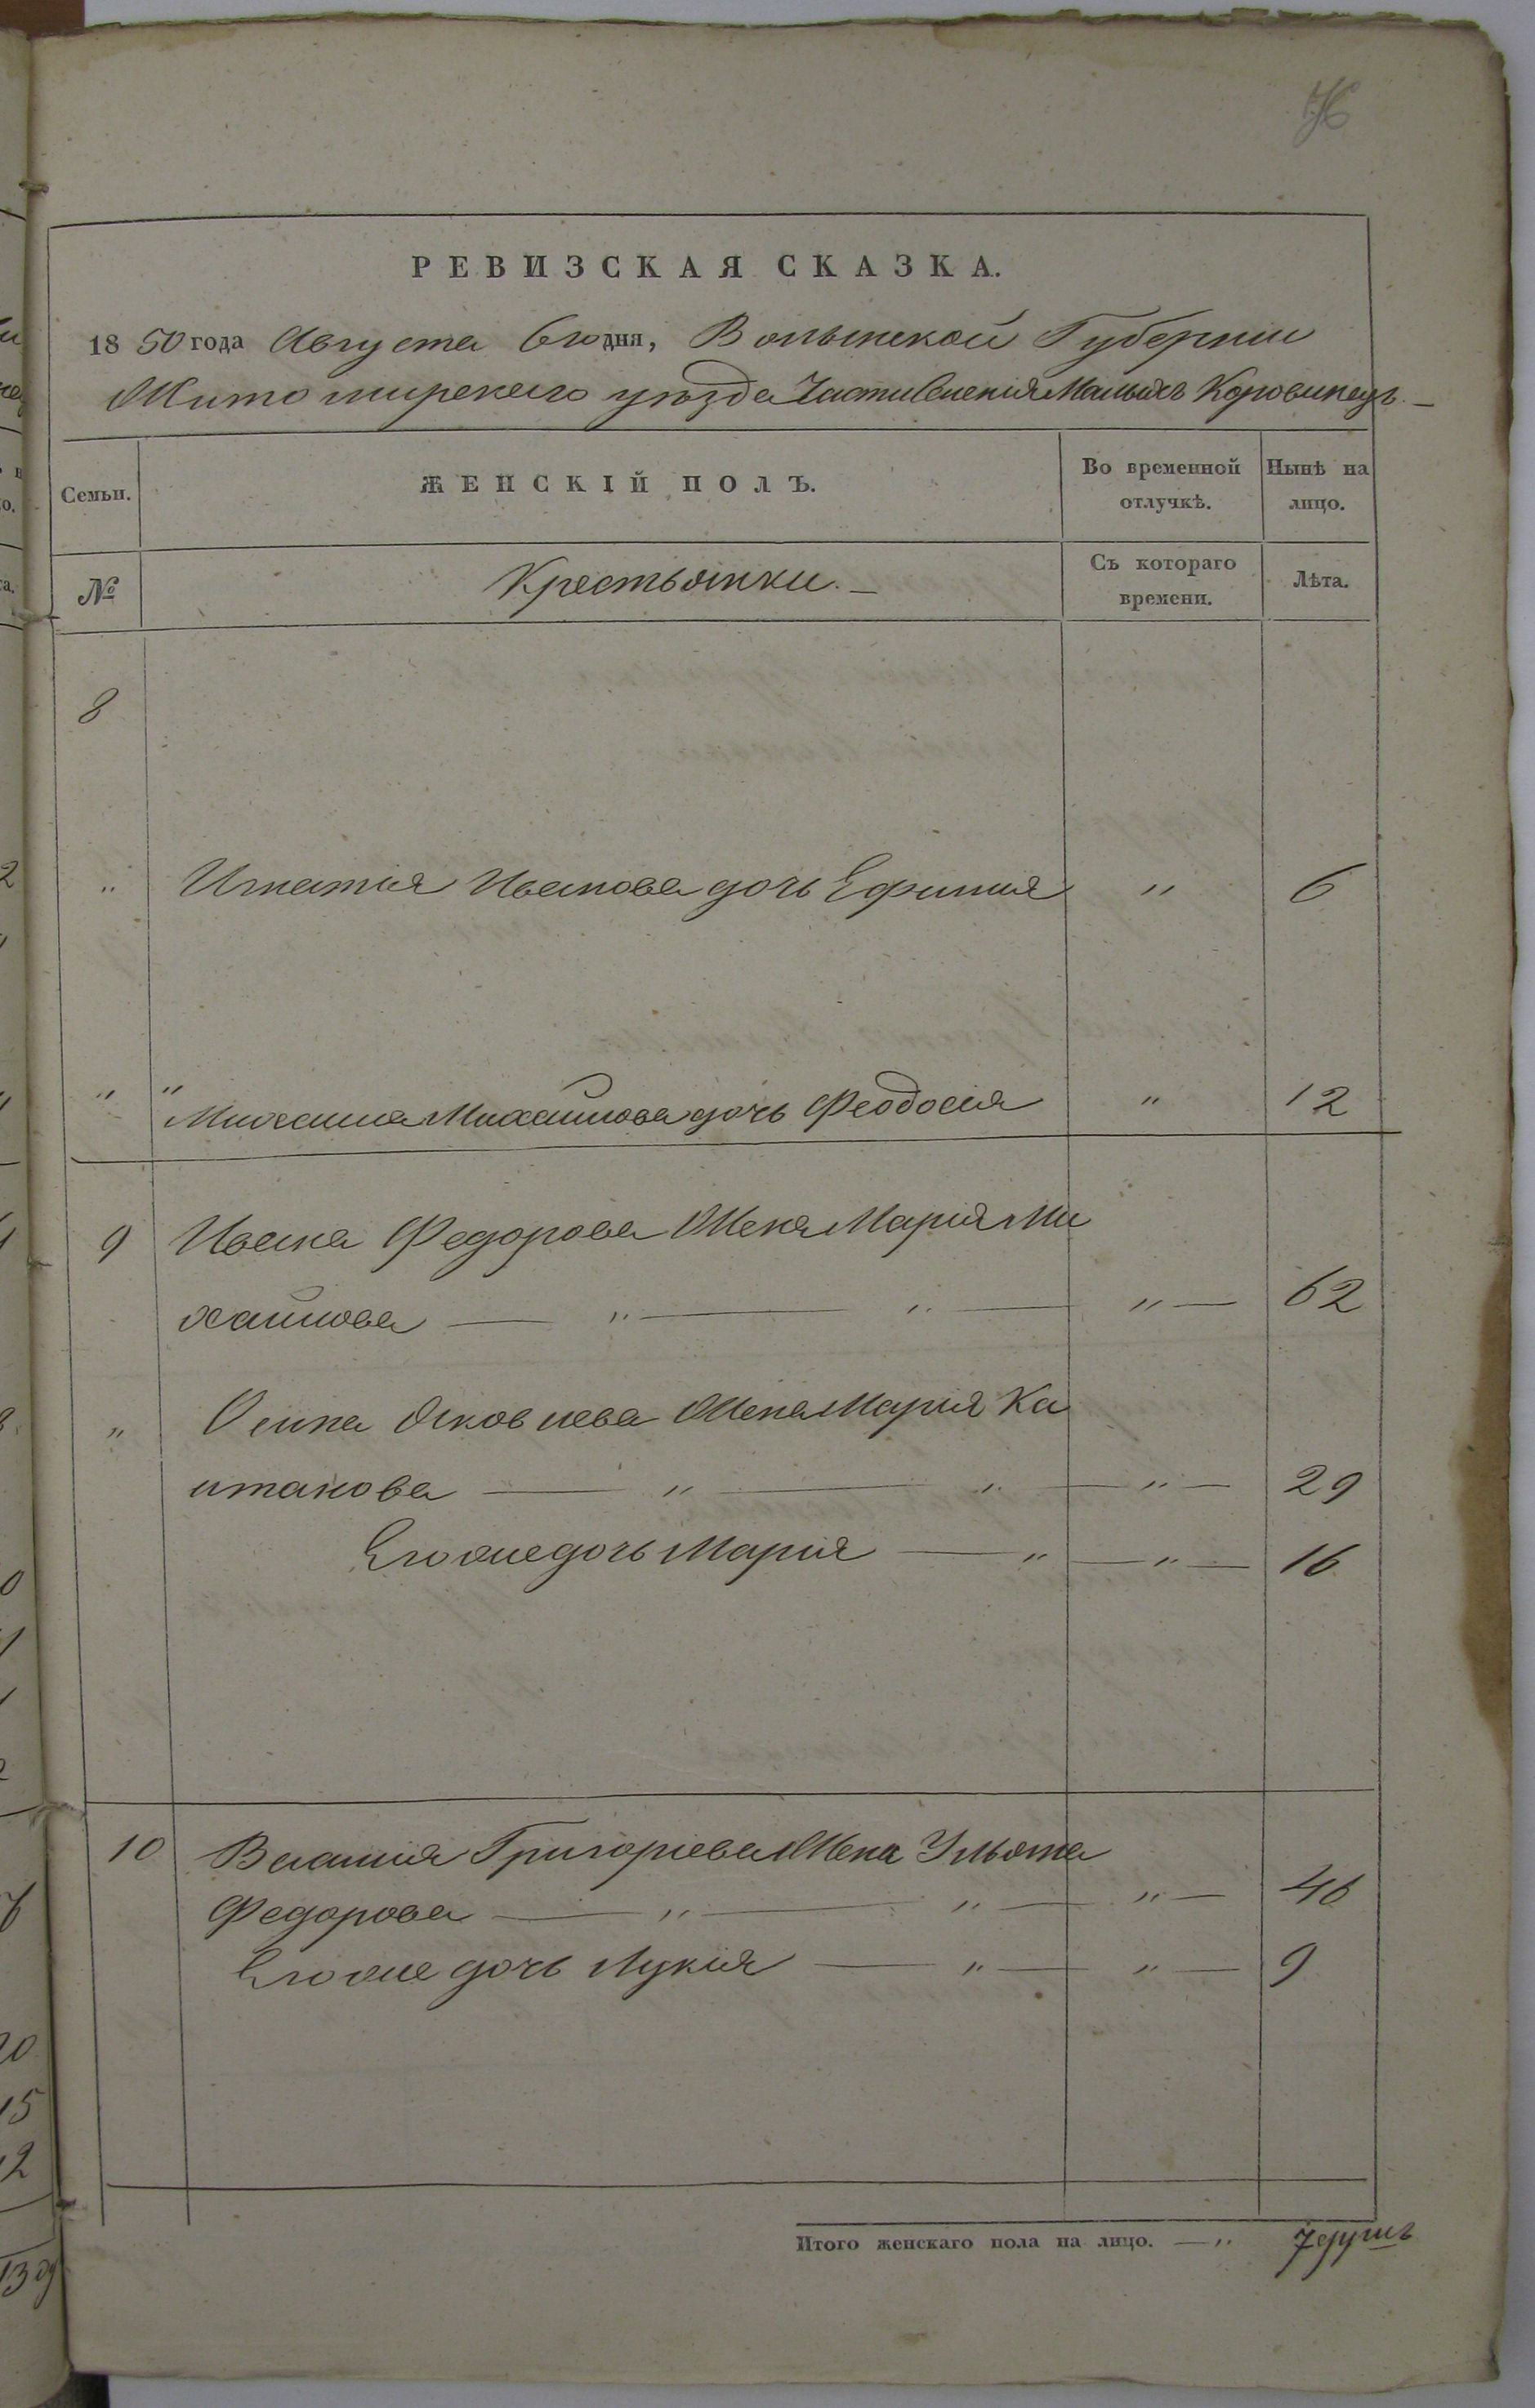 РЕВИЗСКАЯ СКАЗКА.
1850 года Августа 6го дня, Волынской Губернии
Житомирскаго уѣзда Части Селенія Малыхъ Коровинецъ.
Семьи. ЖЕНСКІЙ ПОЛЪ. Во временной отлучкѣ. Нынѣ на лицо.
№ Крестьянки. Съ котораго времени. Лѣта.
8
" Игнатія Иванова дочь Ефимия " 6
" " Михаила Михайлова дочь Феодосія " 12
9 Ивана Федорова Жена Марія Ми
хайлова — " — " — " — 62
" Осипа Яковлева Жена Марія Ка
итанова — " — " — " — 29
Егоже дочь Марія — " — " — 16
10 Василия Григоріева Жена Ульяна
Федорова — " — " — " — 46
Егоже дочь Лукія — " — " — 9
Итого женскаго пола на лицо. — " 7 душъ